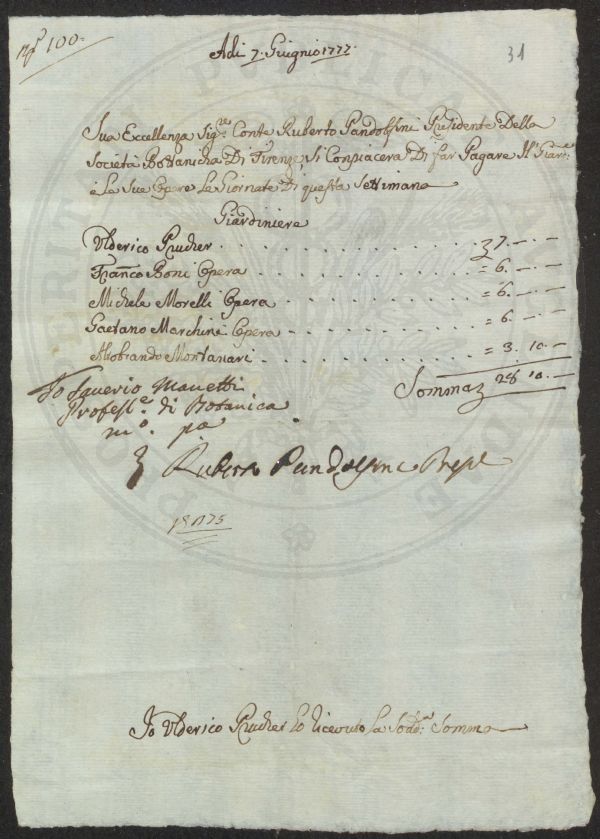 N° 100
31
Adi 7. Giugnio 1777.
Sua Eccellenza Sig.re Conte Ruberto Pandolfini Presidente Della
Società Bottanicha Di Firenze, Si Conpiacera Di far Pagare Il Giar.re
e La Sue Opere Le Giornate Di questa Settimana
Giardiniere
Ulderico Prucher . . . . . . . . . . . . 7. — . —
Franco Boni Opera . . . . . . . . . . = 6. — . —
Michele Morelli Opera . . . . . . . . = 6. — . —
Gaetano Marchini Opera . . . . . . . = 6. — . —
Aliobrando Montanari . . . . . . . . = 3. 10. —
Somma 28 10. —
Io Saverio Manetti
Profess.e di Botanica
m.o p.a
Ruberto Pandolfini Presid.e
Io Ulderico Prucher ho ricevuto La Sodd.a Somma